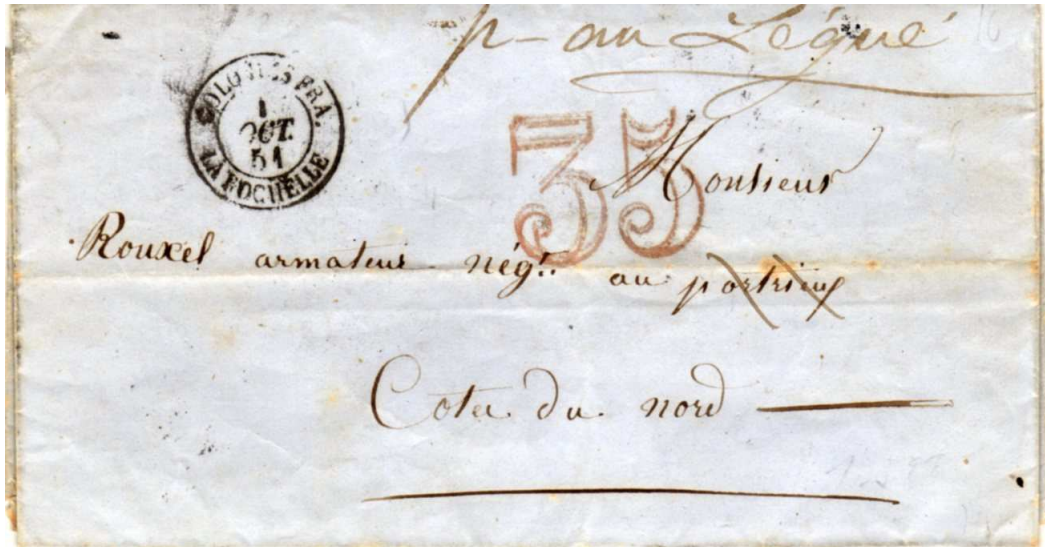 p- au Légué
COLONIES FRA.
1
OCT.
51
LA ROCHELLE
35
Monsieur
Rouxel armateur négt. au portrieux
Cotes du nord